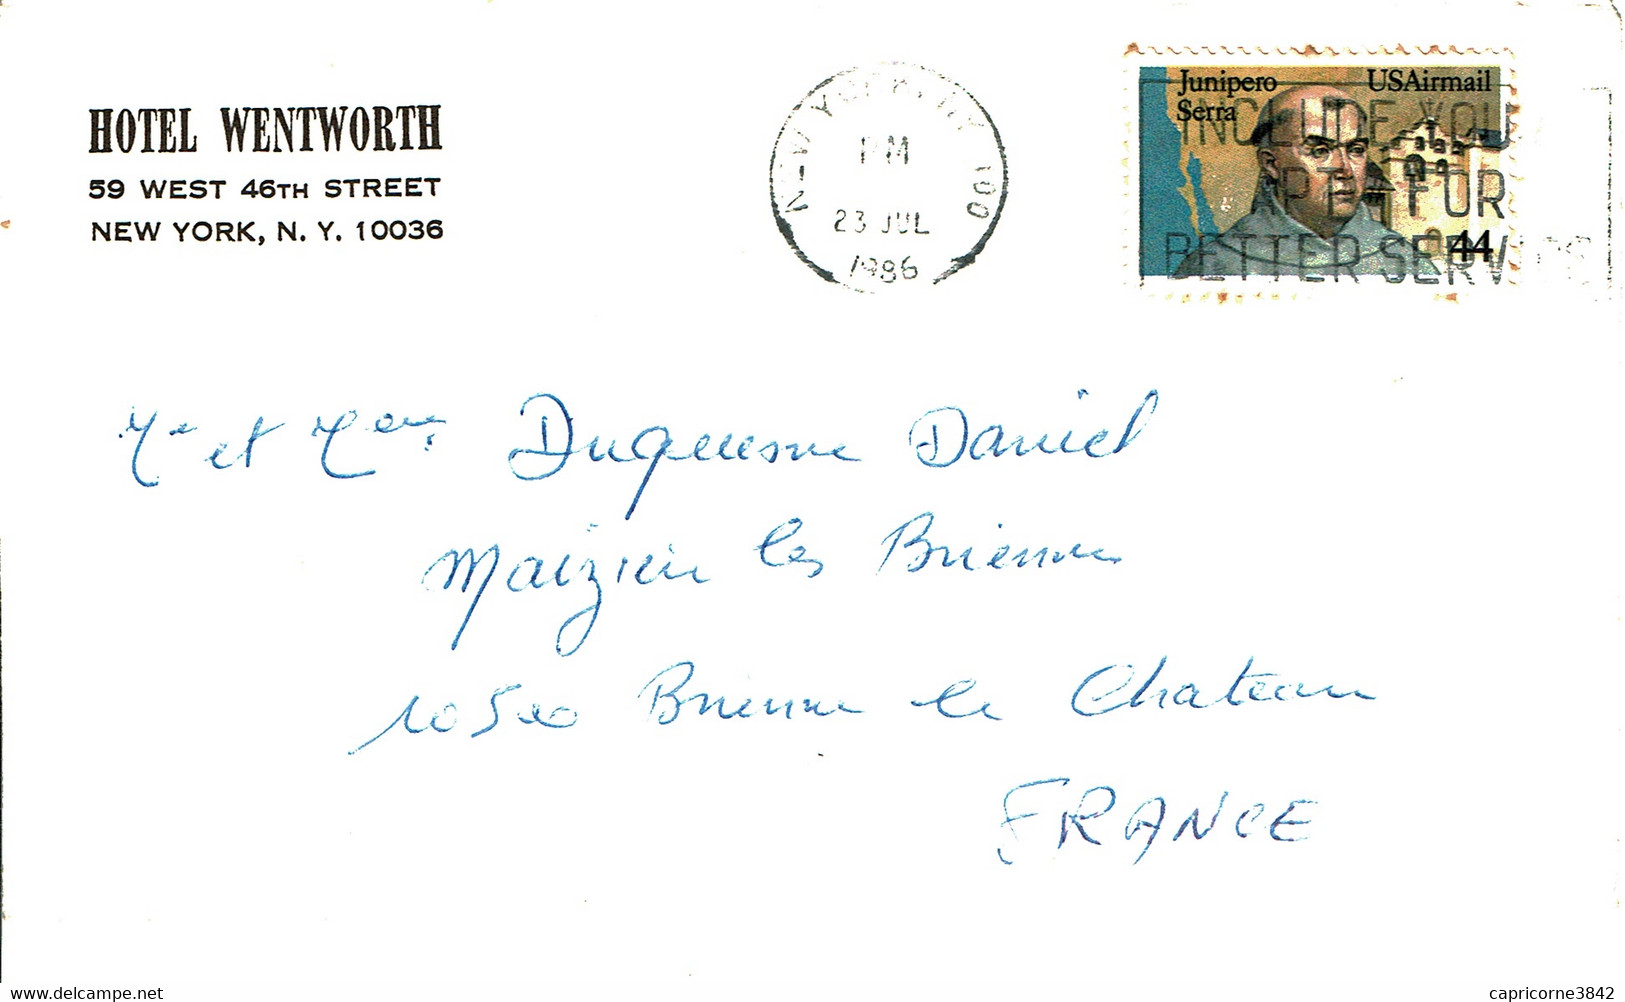 HOTEL WENTWORTH
59 WEST 46TH STREET
NEW YORK, N. Y. 10036
N-W YORK, NY 100
PM
23 JUL
1986
Junipero Serra
USAirmail
44
INCLUDE YOU
APT # FOR
BETTER SERV
Mr et Mme Duquesne Daniel
Maizieres les Brienne
10500 Brienne le Chateau
FRANCE
delcampe.net
capricorne3842